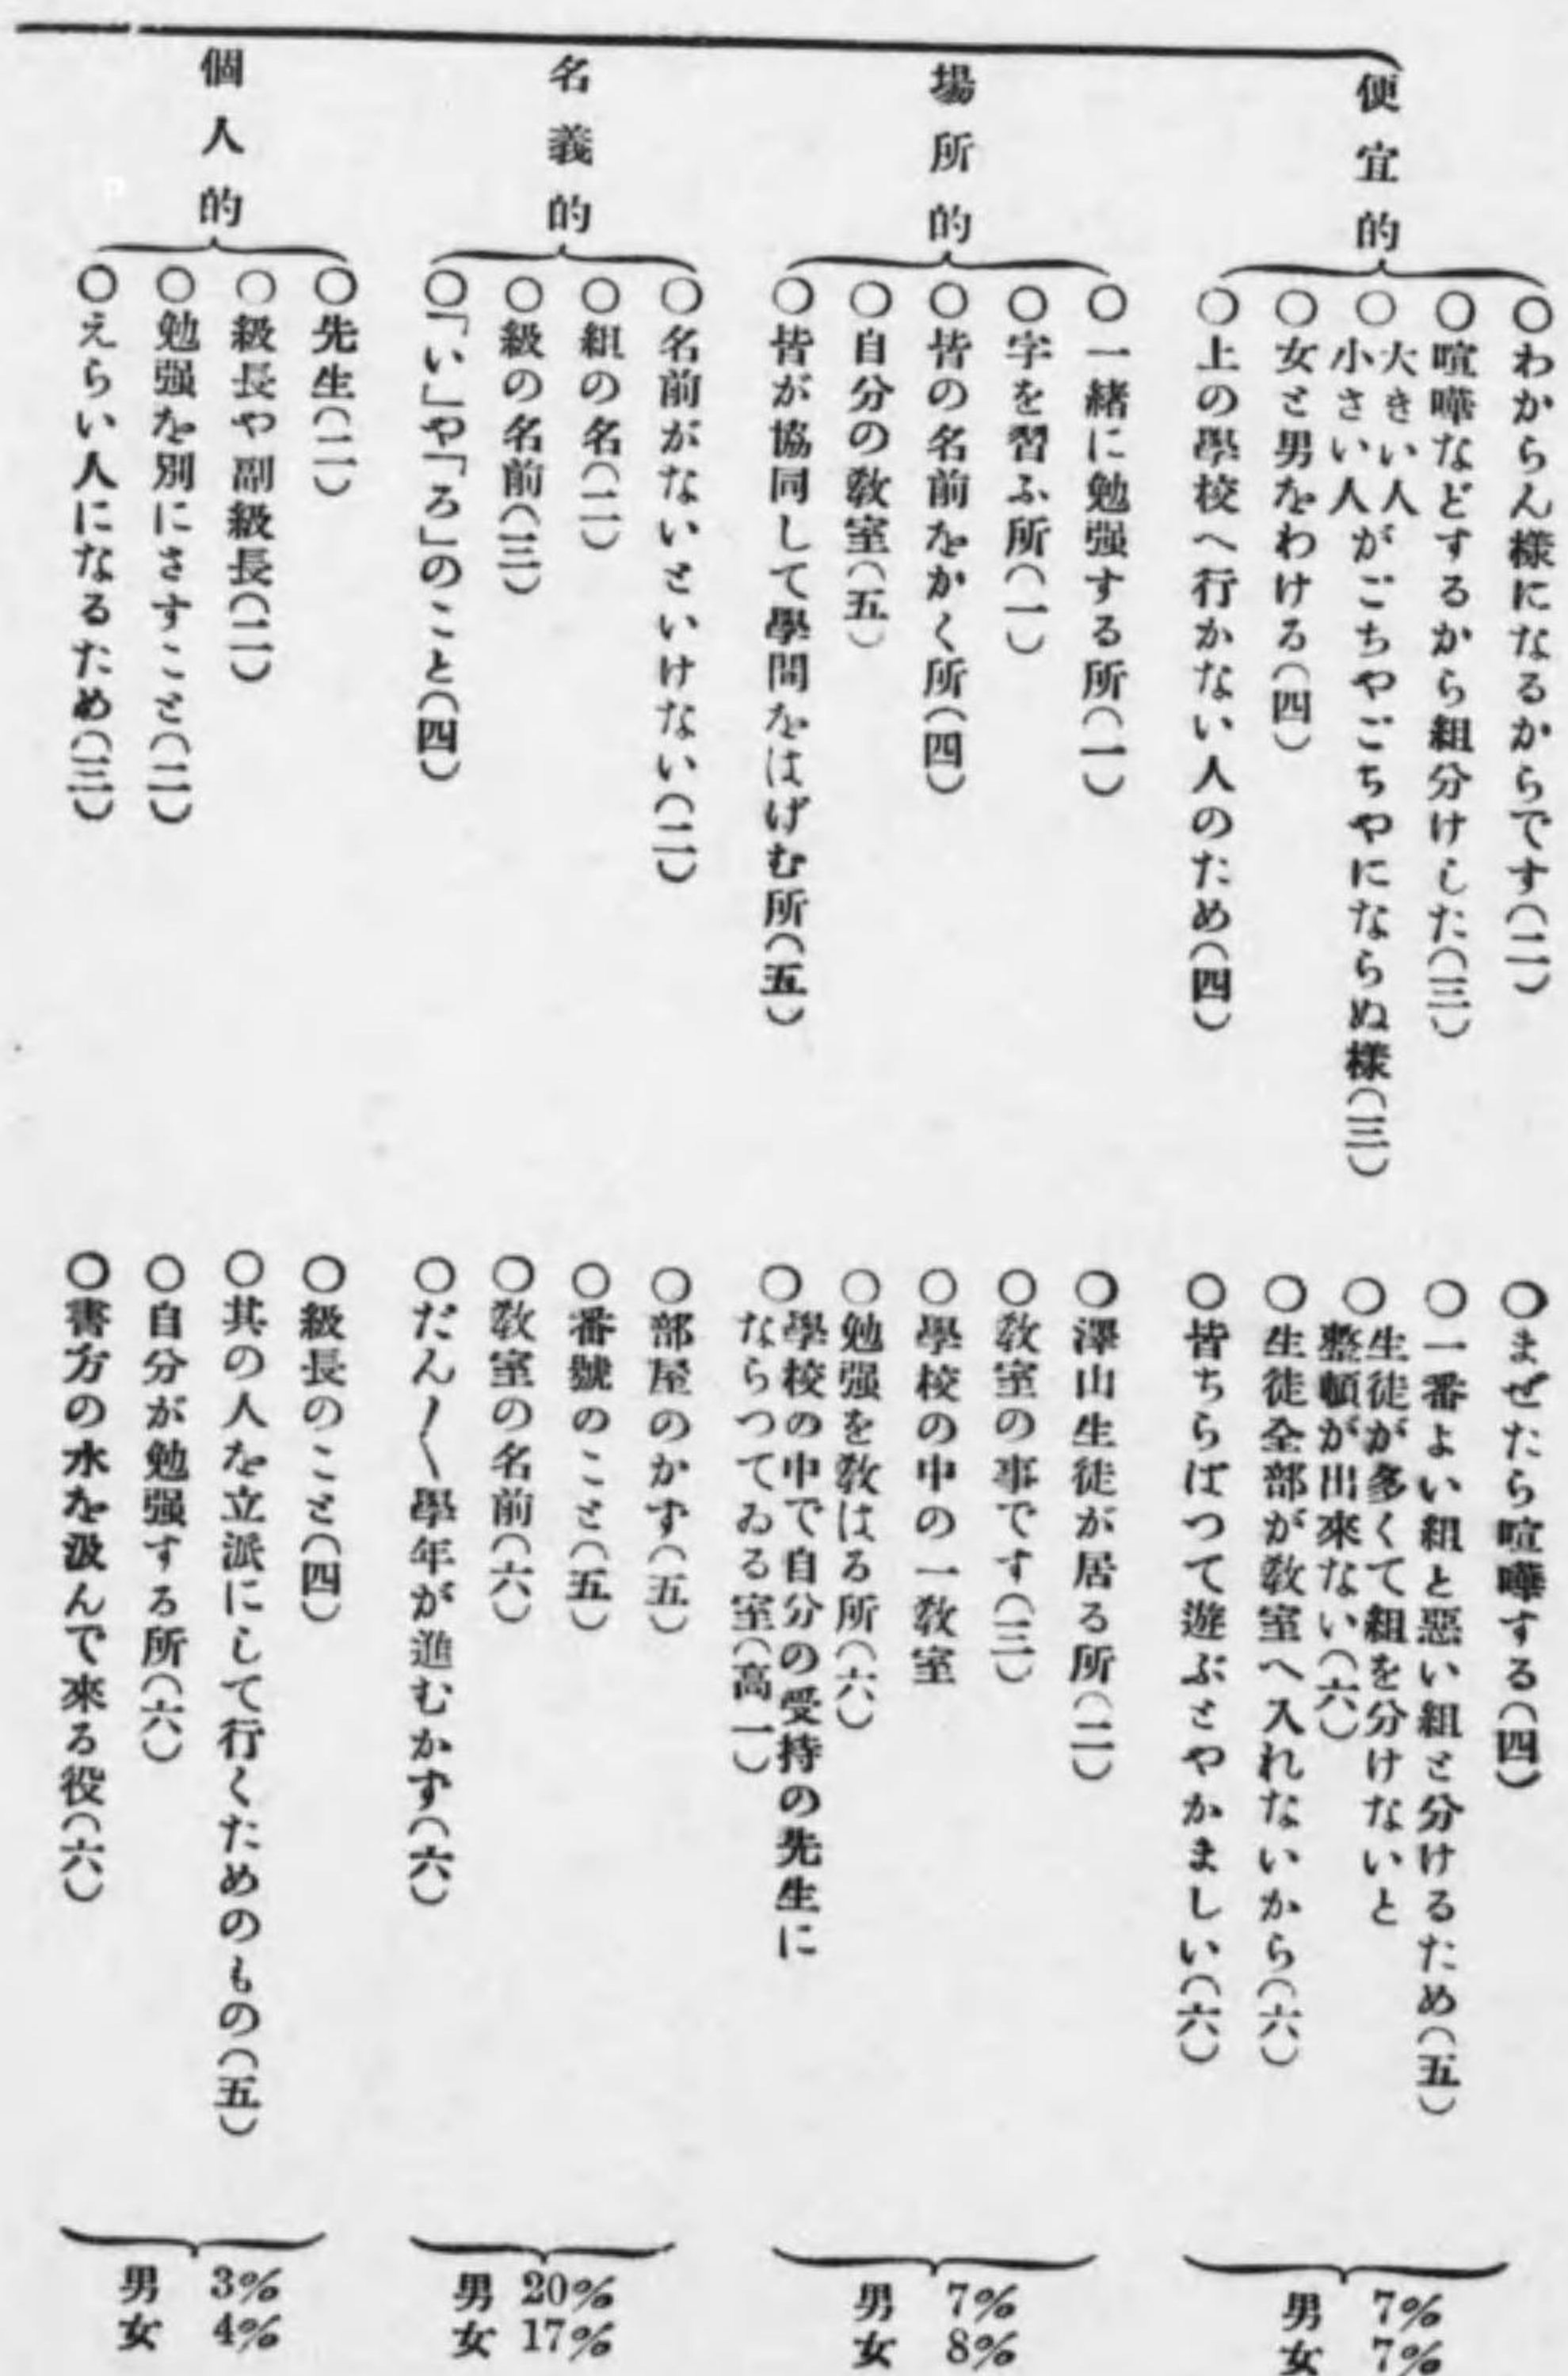 便宜的
○わからん樣になるからです(二)
○喧嘩などするから組分けした(三)
○大きい人
小さい人がごちやごちやにならぬ樣(三)
○女と男をわける(四)
○上の學校へ行かない人のため(四)
○まぜたら喧嘩する(四)
○一番よい組と惡い組と分けるため(五)
○生徒が多くて組を分けないと
整頓が出來ない(六)
○生徒全部が敎室へ入れないから(六)
○皆ちらばつて遊ぶとやかましい(六)
男 7%
女 7%
場所的
○一緖に勉强する所(一)
○字を習ふ所(一)
○皆の名前をかく所(四)
○自分の敎室(五)
○皆が協同して學問をはげむ所(五)
○澤山生徒が居る所(二)
○敎室の事です(三)
○學校の中の一敎室
○勉强を敎はる所(六)
○學校の中で自分の受持の先生に
ならつてゐる室(高一)
男 7%
女 8%
名義的
○名前がないといけない(二)
○組の名(二)
○級の名前(三)
○「い」や「ろ」のこと(四)
○部屋のかず(五)
○番號のこと(五)
○敎室の名前(六)
○だん〳〵學年が進むかず(六)
男 20%
女 17%
個人的
○先生(二)
○級長や副級長(二)
○勉强を別にさすこと(二)
○えらい人になるため(三)
○級長のこと(四)
○其の人を立派にして行くためのもの(五)
○自分が勉强する所(六)
○書方の水を汲んで來る役(六)
男 3%
女 4%